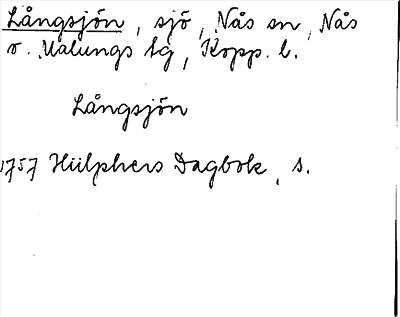 Långsjön, sjö, Nås sn, Nås
o. Malungs tg, Kopp. l.
Långsjön
1757 Hülphers Dagbok, s.